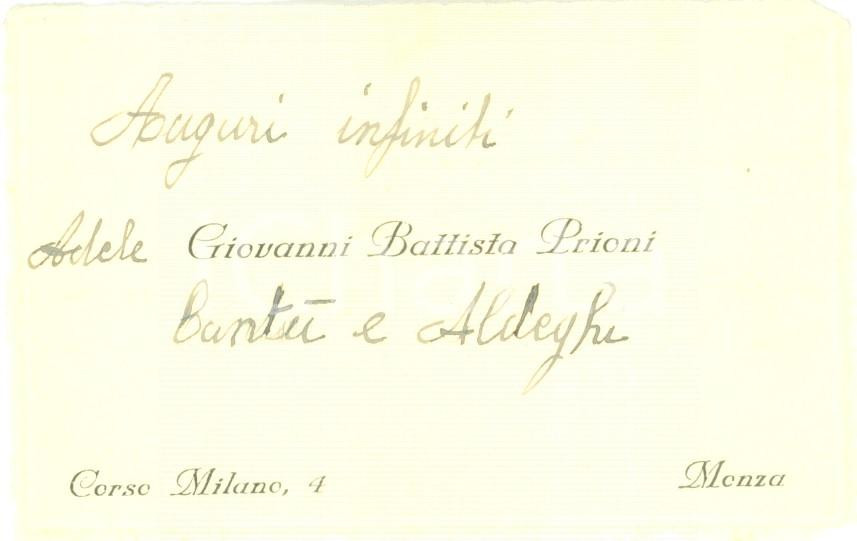 Auguri infiniti
Adele Giovanni Battista Prioni
Cantù e Aldeghi
Corso Milano, 4 Monza